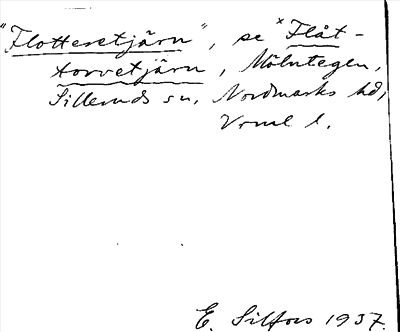 "Flottesetjärn", se ˣFlåt-
torvetjärn, Mölntegen,
Silleruds sn, Nordmarks hd,
Vrml l.
E. Silfors 1937.